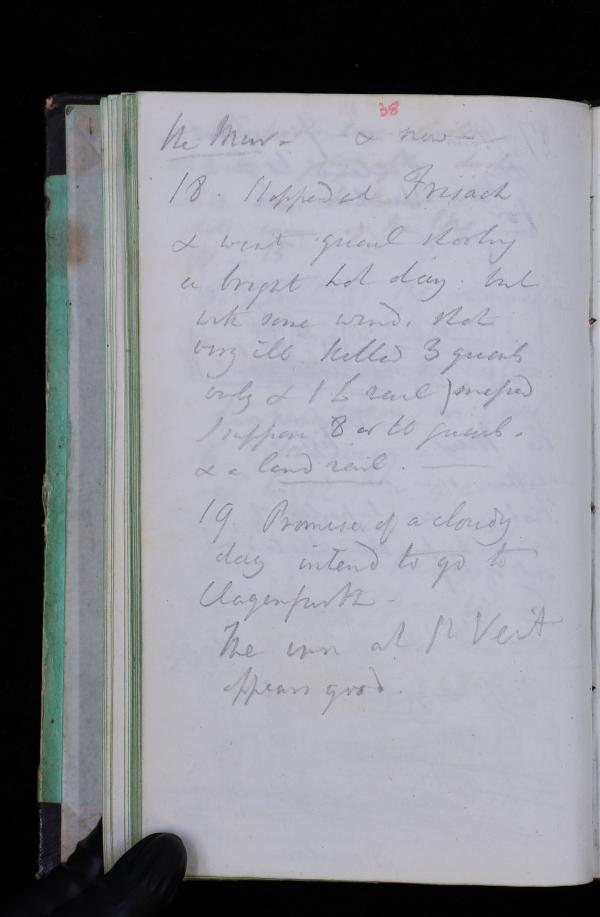 38
the Mur - & now -
18. Stopped at Frisach
& went quail shooting
a bright hot day. but
with some wind. shot
very ill killed 3 quails
only & 1 L rail) missed
I suppose 8 or 10 quails.
& a land rail.
19. Promise of a cloudy
day intend to go to
Clagenfurth -
The inn at St Veit
appears good.